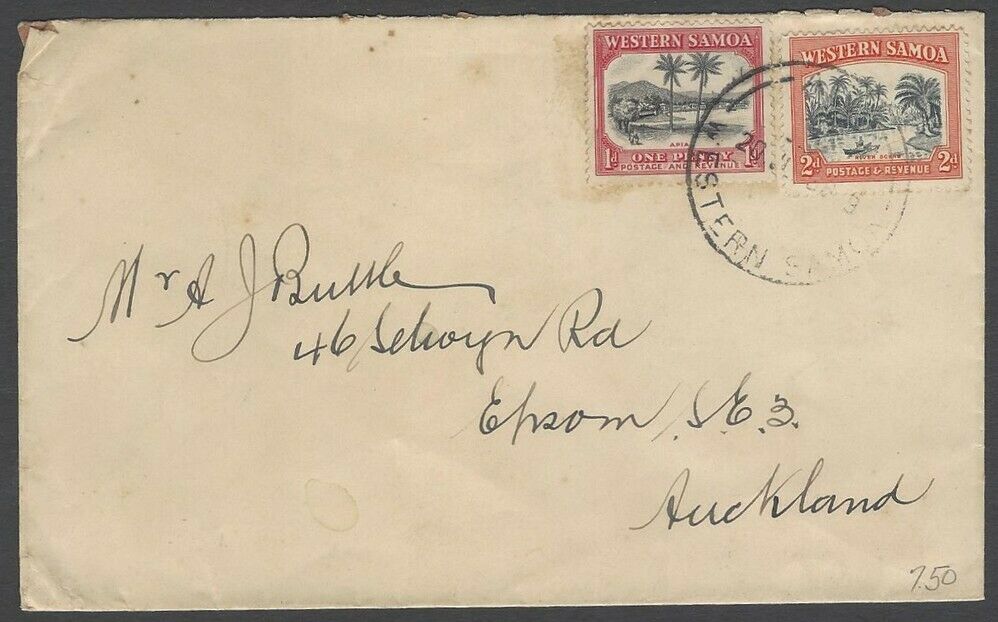 WESTERN SAMOA
APIA
1d ONE PENNY 1d
POSTAGE AND REVENUE
WESTERN SAMOA
RIVER SCENE
2d 2d
POSTAGE & REVENUE
20
WESTERN SAMOA
Mr A J Buttle
46 Selwyn Rd
Epsom, S.E.3.
Auckland
7.50